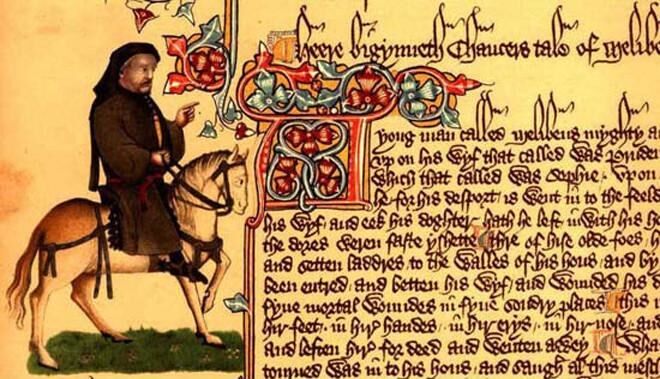 Heere bigynneth Chaucers tale of Melibe
A yong man called Melibeus myghty a
up on his wyf that called was Pruden
which that called was Sophie / Upon
he for his desport / is went in to the feeld
his wyf / and eek his doghter / hath he left inwith his h
the dores weren faste yshette / thre of hise olde foes / h
and setten laddres / to the walles of his hous / and by
been entred / and betten his wyf / and wounded his d
fyue mortal woundes in fyue sondry places / this i
hir feet / in hir handes / in hir erys / in hir nose / and
and leften hir for deed and wenten awey / Whan
tourned was in to his hous / and saugh al this mesch